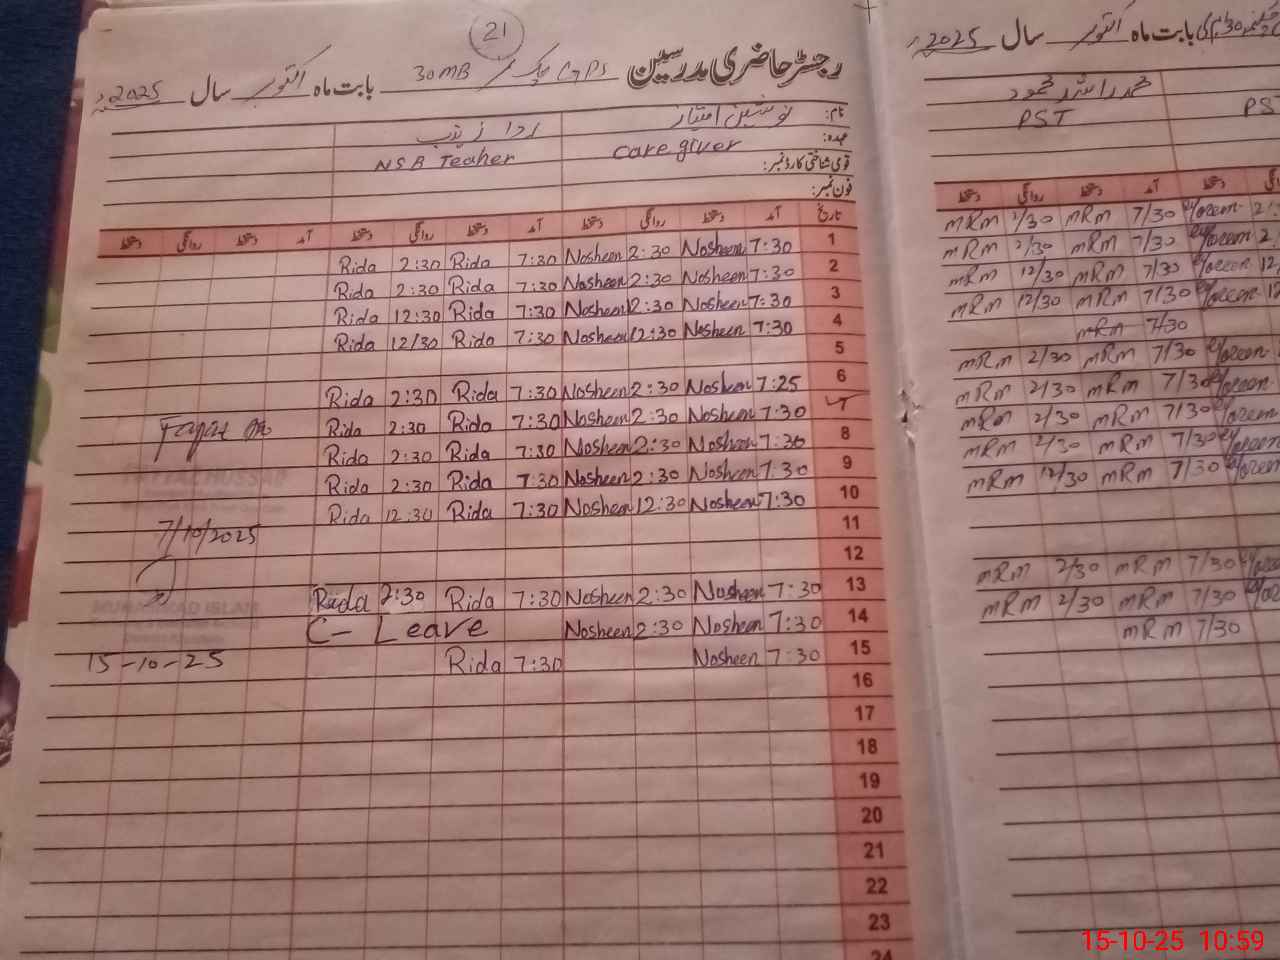 21
رجسٹر حاضری مدرسین GPS چک 30MB بابت ماہ اکتوبر سال 2025ء
نام: نوشین امتیاز ردا زینب
عہدہ: Care giver NSB Teaher
قومی شناختی کارڈ نمبر:
فون نمبر:
تاریخ آمد دستخط روانگی دستخط آمد دستخط روانگی دستخط آمد دستخط روانگی دستخط
1 7:30 Nosheen 2:30 Nosheen 7:30 Rida 2:30 Rida
2 7:30 Nosheen 2:30 Nosheen 7:30 Rida 2:30 Rida
3 7:30 Nosheen 12:30 Nosheen 7:30 Rida 12:30 Rida
4 7:30 Nosheen 12:30 Nosheen 7:30 Rida 12/30 Rida
5
6 7:25 Nosheen 2:30 Nosheen 7:30 Rida 2:30 Rida
7 7:30 Nosheen 2:30 Nosheen 7:30 Rida 2:30 Rida
8 7:30 Nosheen 2:30 Nosheen 7:30 Rida 2:30 Rida
9 7:30 Nosheen 2:30 Nosheen 7:30 Rida 2:30 Rida
10 7:30 Nosheen 12:30 Nosheen 7:30 Rida 12:30 Rida
11
12
13 7:30 Nosheen 2:30 Nosheen 7:30 Rida 2:30 Rida
14 7:30 Nosheen 2:30 Nosheen C- Leave
15 7:30 Nosheen 7:30 Rida
16
17
18
19
20
21
22
23
24
HUSSAIN
7/10/2025
MUHAMMAD ISLAM
15-10-25
بابت ماہ اکتوبر سال 2025ء
محمد راشد محمود
PST PST
آمد دستخط روانگی دستخط
7/30 MRM 2/30 MRM
7/30 MRM 2/30 MRM
7/30 MRM 12/30 MRM
7/30 MRM 12/30 MRM
7/30 MRM
7/30 MRM 2/30 MRM
7/30 MRM 2/30 MRM
7/30 MRM 2/30 MRM
7/30 MRM 2/30 MRM
7/30 MRM 12/30 MRM
7/30 MRM 2/30 MRM
7/30 MRM 2/30 MRM
7/30 MRM
15-10-25 10:59